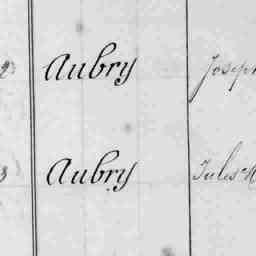 Aubry Joseph
Aubry Jules